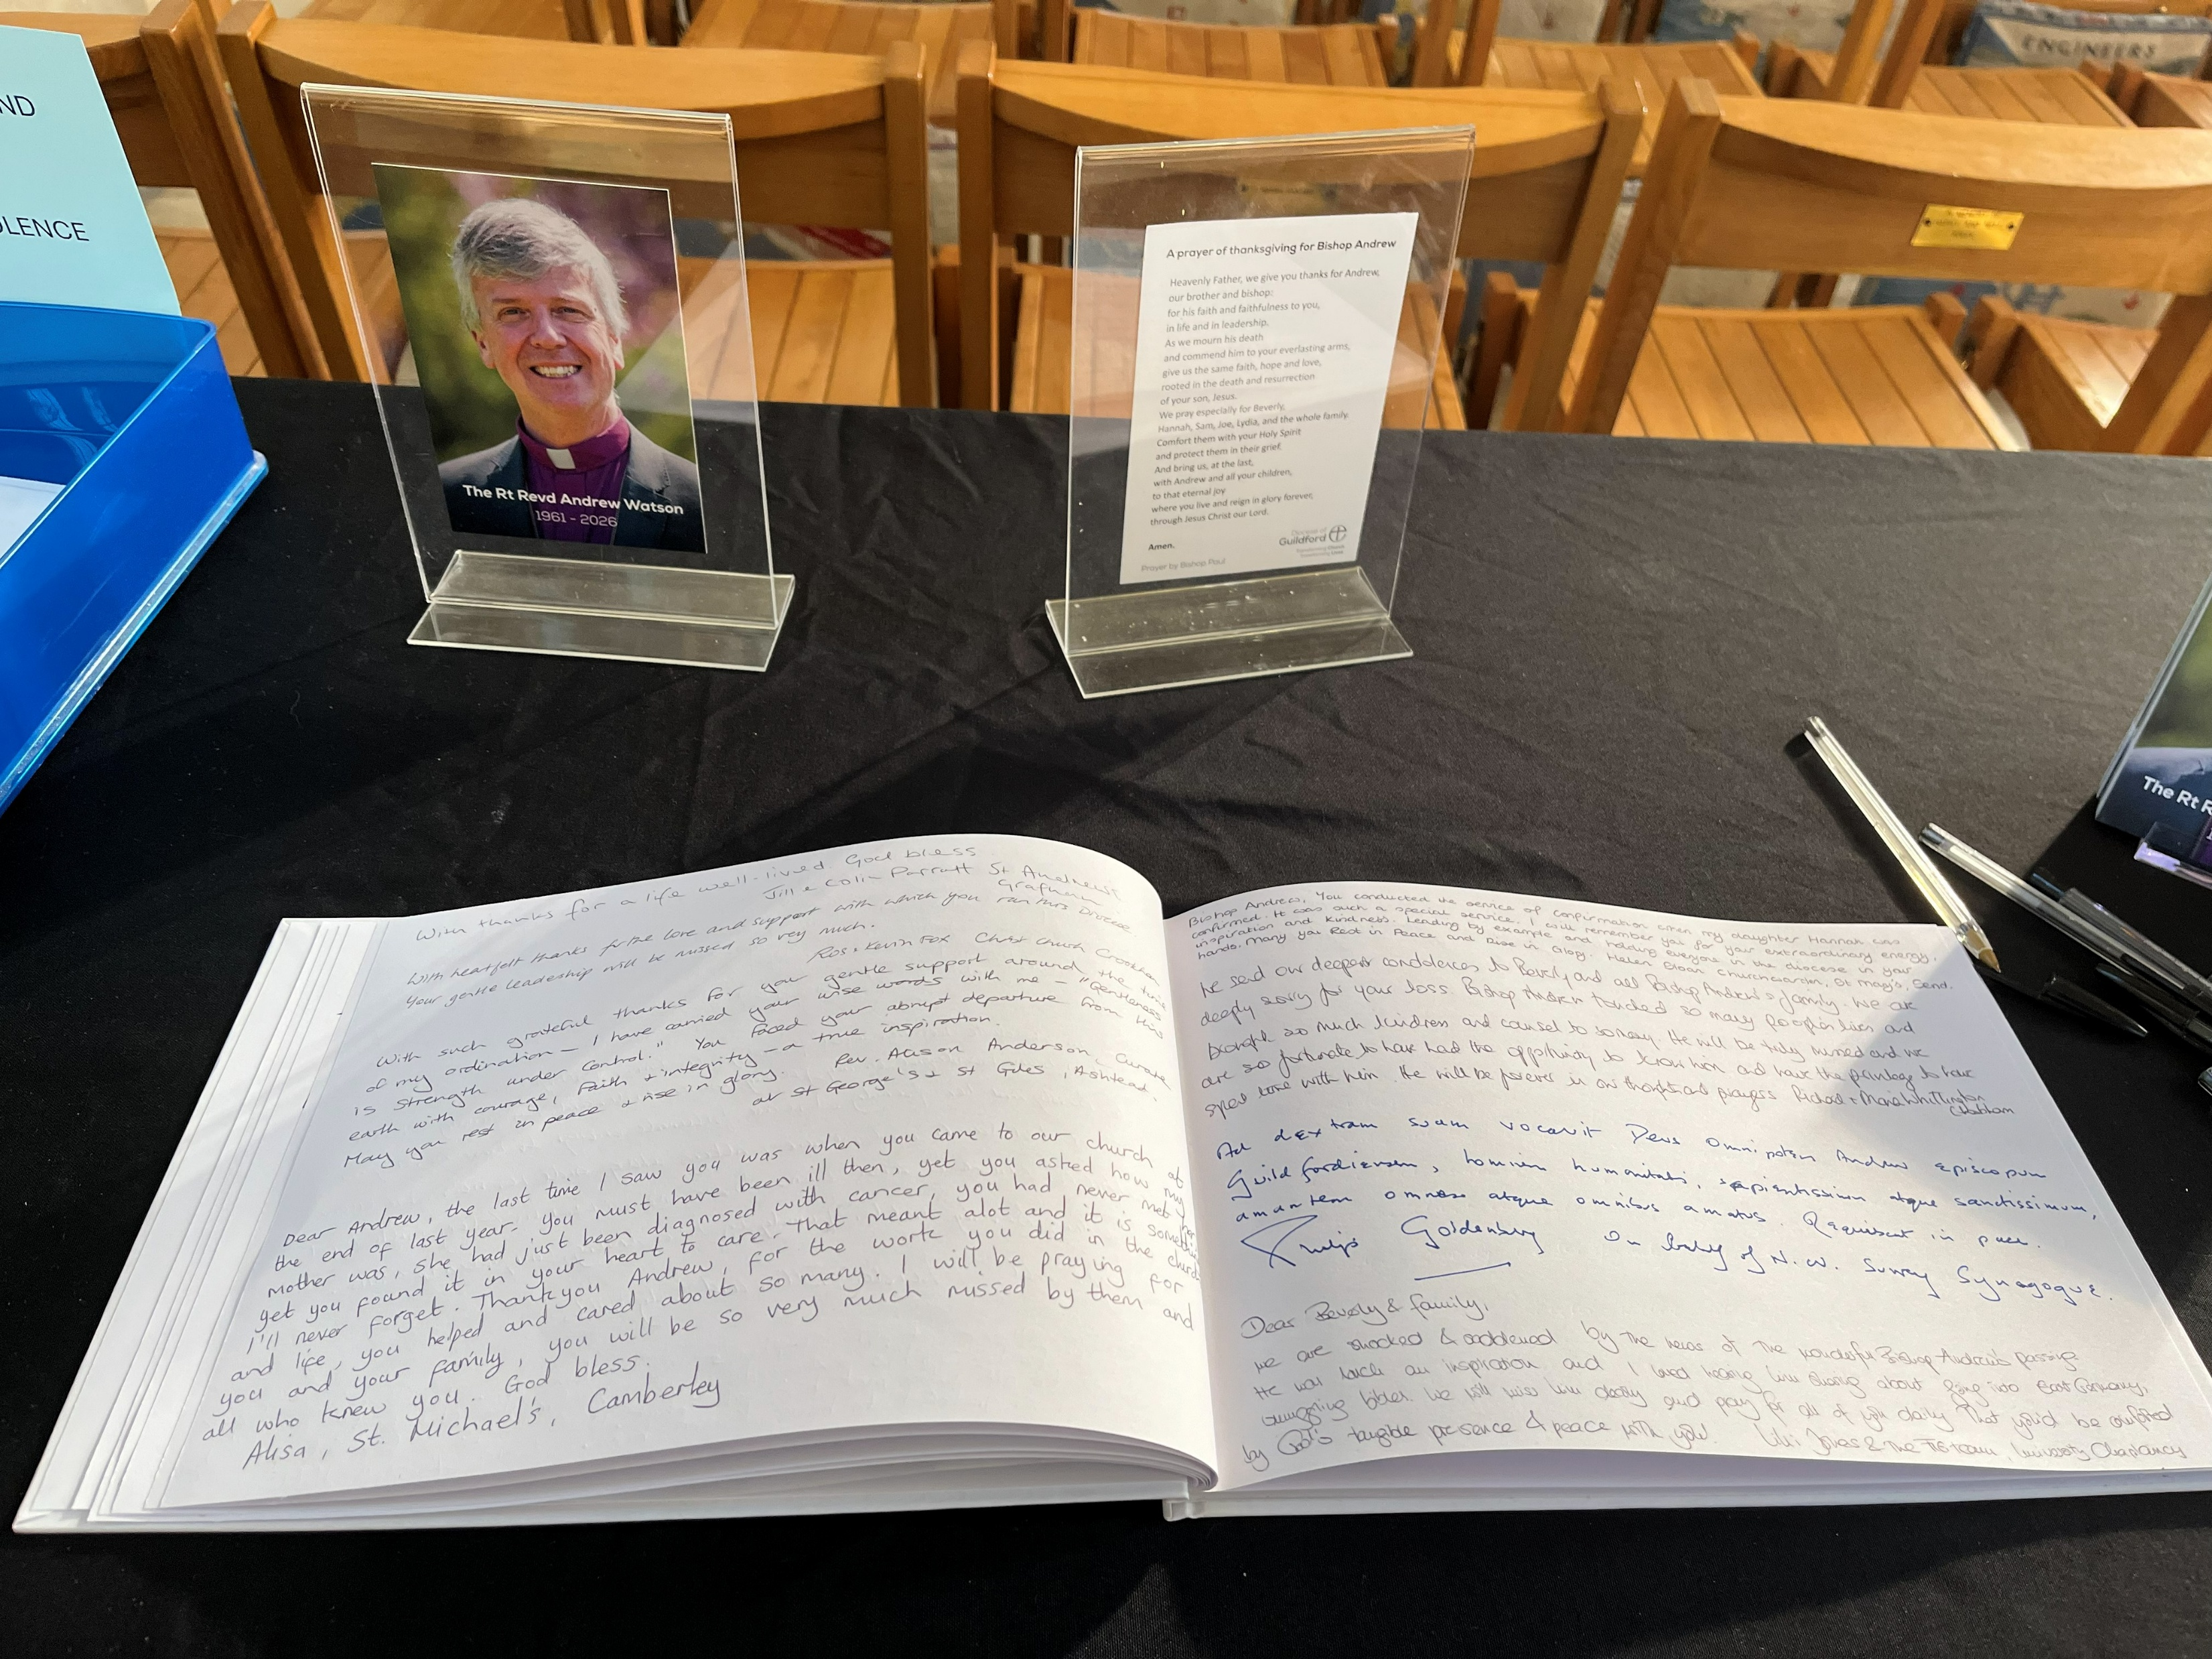 ND
OLENCE
ENGINEERS
The Rt Revd Andrew Watson
1961 - 2026
A prayer of thanksgiving for Bishop Andrew
Heavenly Father, we give you thanks for Andrew,
our brother and bishop:
for his faith and faithfulness to you,
in life and in leadership.
As we mourn his death
and commend him to your everlasting arms,
give us the same faith, hope and love,
rooted in the death and resurrection
of your son, Jesus.
We pray especially for Beverly,
Hannah, Sam, Joe, Lydia, and the whole family.
Comfort them with your Holy Spirit
and protect them in their grief.
And bring us, at the last,
with Andrew and all your children,
to that eternal joy
where you live and reign in glory forever,
through Jesus Christ our Lord.
Amen.
Diocese of
Guildford
Prayer by Bishop Paul
The Rt R
With thanks for a life well-lived God bless.
Jill & Colin Parratt St Andrew's
Grafham
With heartfelt thanks for the love and support with which you ran this Diocese
Your gentle leadership will be missed so very much.
Ros & Kevin Fox Christ Church Crookham
With such grateful thanks for your gentle support around the time
of my ordination - I have carried your wise words with me - "Gentleness
is strength under control." You faced your abrupt departure from this
earth with courage, faith & integrity - a true inspiration.
May you rest in peace & rise in glory. Rev. Alison Anderson, Curate
at St George's & St Giles, Ashtead.
Dear Andrew, the last time I saw you was when you came to our church at
the end of last year. You must have been ill then, yet you asked how my
mother was, she had just been diagnosed with cancer, you had never met her
yet you found it in your heart to care. That meant alot and it is something
I'll never forget. Thankyou Andrew, for the work you did in the church
and life, you helped and cared about so many. I will be praying for
you and your family, you will be so very much missed by them and
all who knew you. God bless.
Alisa, St. Michael's, Camberley
Bishop Andrew, You conducted the service of confirmation when my daughter Hannah was
confirmed. It was such a special service. I will remember you for your extraordinary energy,
inspiration and kindness. Leading by example and holding everyone in the diocese in your
hands. Many you Rest in Peace and Rise in Glory. Helen Sloan Churchwarden, St Mary's, Send.
We send our deepest condolences to Beverly and all Bishop Andrew's family. We are
deeply sorry for your loss. Bishop Andrew touched so many people's lives and
brought so much kindness and counsel to so many. He will be truly missed and we
are so fortunate to have had the opportunity to know him and have the privilege to have
spent time with him. He will be forever in our thoughts and prayers Richard & Whittington
Cobham
Ad dextram suam vocavit Deus Omnipotens Andrew episcopum
Guildfordiensem, hominem humanitatis, sapientissimum atque sanctissimum,
amantem omnes atque omnibus amatus. Requiescat in pace.
Philip Goldenberg On behalf of N.W. Surrey Synagogue.
Dear Beverly & family,
We are shocked & saddened by the news of the wonderful Bishop Andrew's passing
He was such an inspiration and I loved hearing him sharing about going into East Germany,
smuggling bibles. We will miss him dearly and pray for all of you daily That you'd be comforted
by God's tangible presence & peace with you! Jones & the team, University Chaplaincy